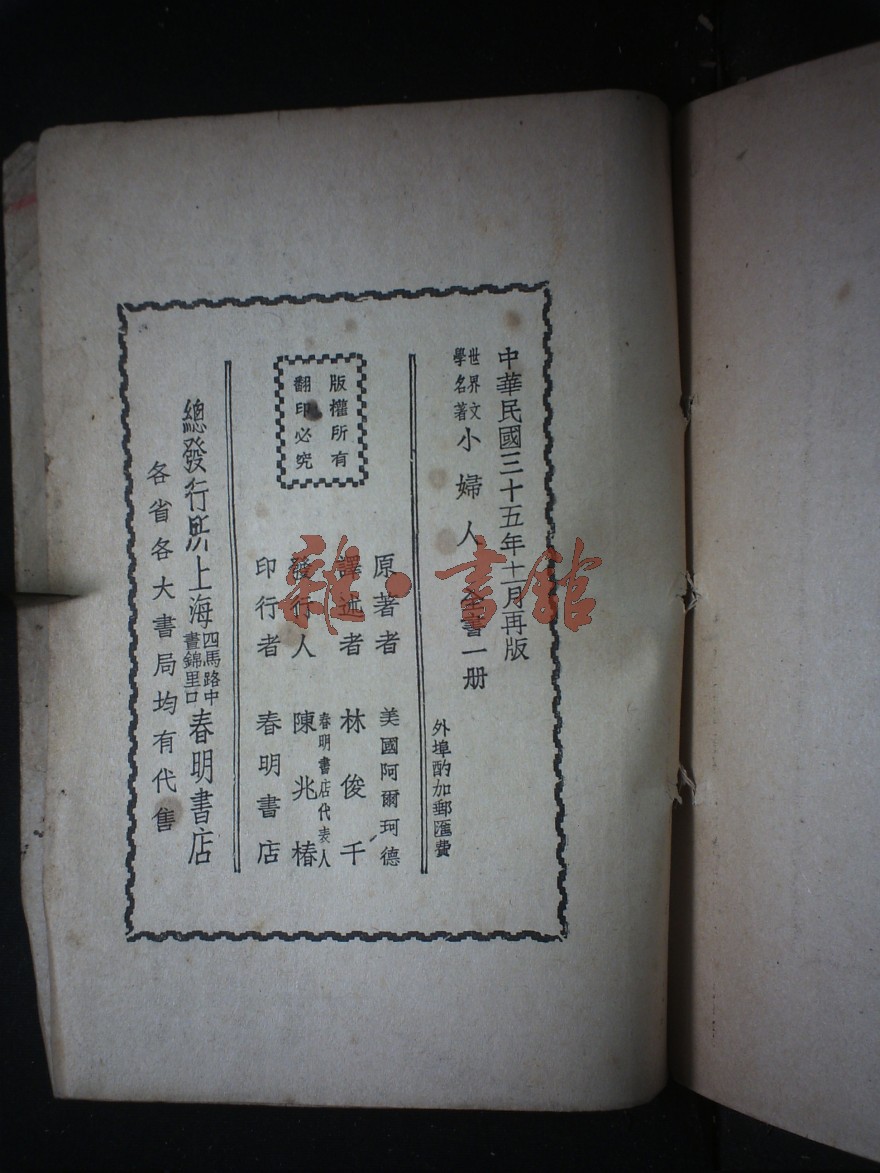 中華民國三十五年十一月再版
世界文學名著 小婦人 全書一册
外埠酌加郵匯費
原著者 美國阿爾珂德
譯述者 林俊千
發行人 春明書店代表人 陳兆椿
印行者 春明書店
版權所有
翻印必究
總發行所 上海 四馬路中 晝錦里口 春明書店
各省各大書局均有代售
雜·書館